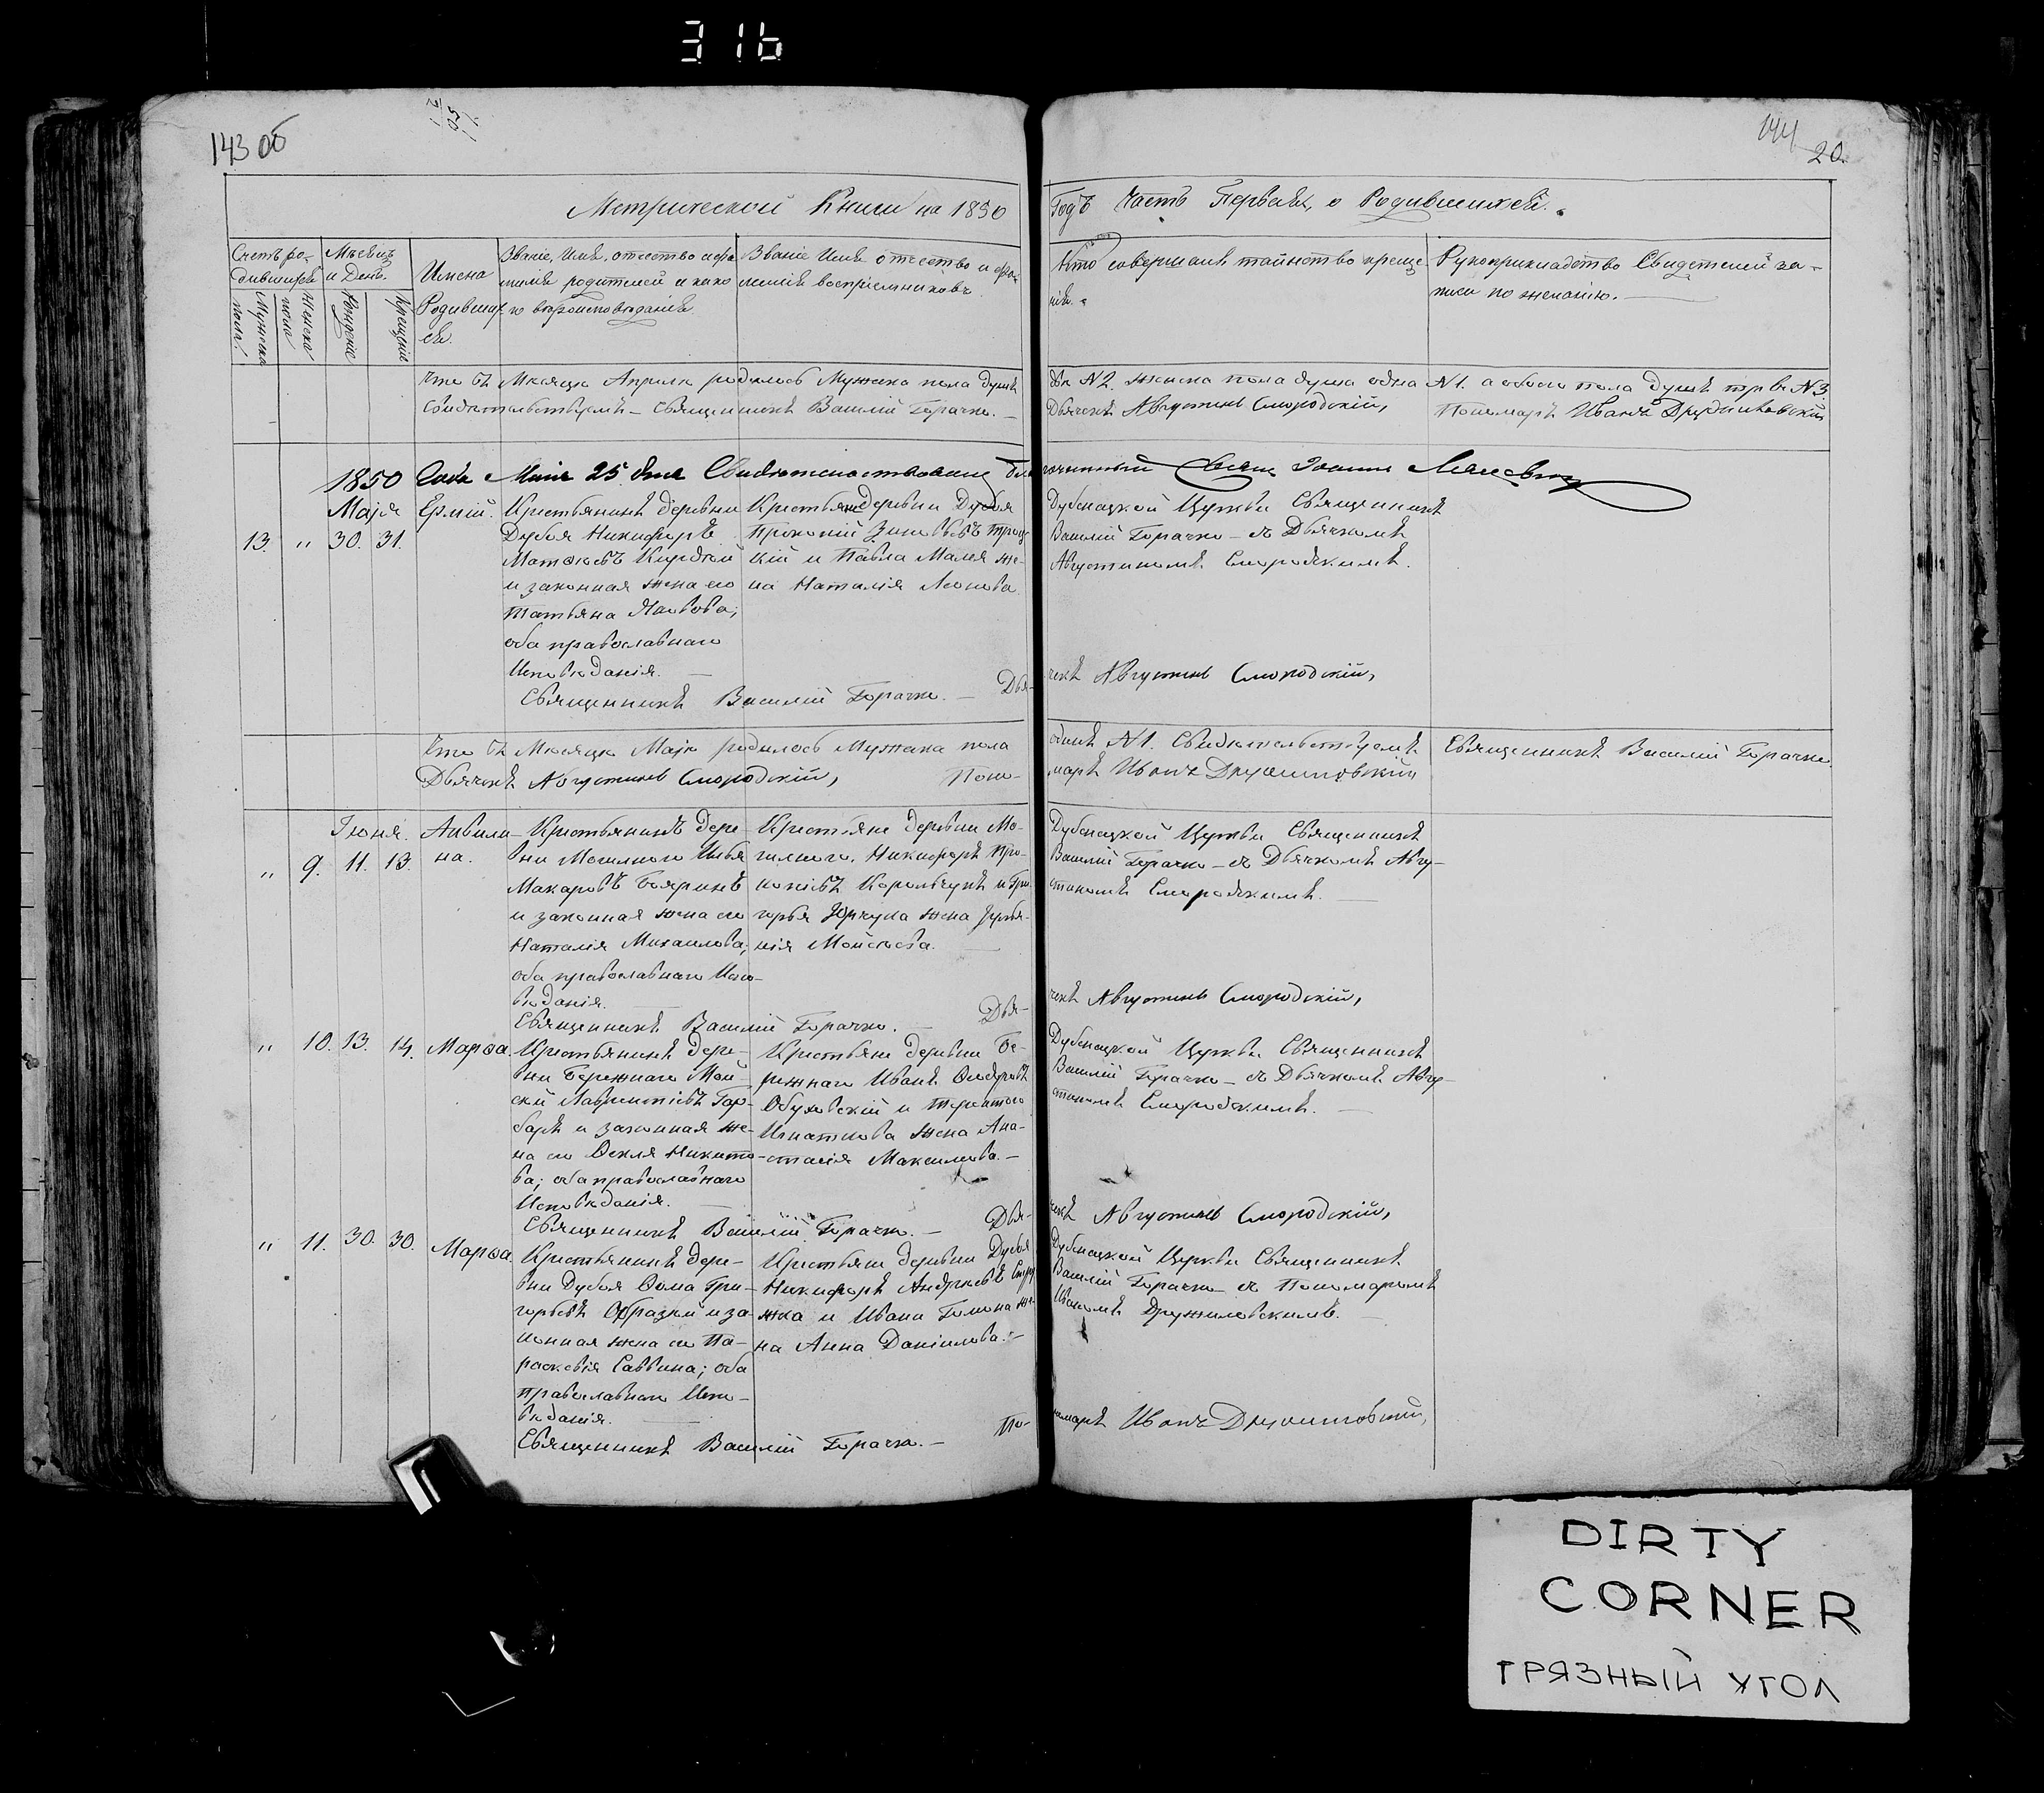 316
143 об
144
20.
Метрической Книги на 1850
Годъ Часть Первая, о Родившихся.
Счетъ ро-
дившихся
Мѣсяцъ
и День.
Мужеска
пола.
Женска
пола
Рожденіе
Крещеніе
Имена
Родивших
ся.
Званіе, Имя, отчество и фа
милія родителей и како
го вѣроисповѣданія
Званіе Имя отчество и фа-
милія воспріемниковъ
Кто совершалъ таинство креще
нія.
Рукоприкладство Свидетелей за-
писи по желанію.
Что въ Мѣсяцѣ Апрѣлѣ родилось Мужеска пола душъ
двѣ N2. женска пола душа одна N1. а обоего пола душъ три N3.
Свидѣтельствуемъ - Священникъ Василій Горачко.
Дьячекъ Августинъ Смородскій,
Пономарь Иванъ Дружиловскій
1850 Года Маія 25 дня Свидѣтельствовалъ Благочинный Іоаннъ
Маія
13. " 30. 31.
Ермій.
Крестьянинъ деревни
Дубоя Никифоръ
Матѳѣевъ
и законная жена его
Татьяна
оба православнаго
Исповѣданія.
Крестьяне деревни Дубоя
Прокопій
кій и Павла Малея же-
на Наталія Леонова
Дубоядской Церкви Священникъ
Василій Горачко - съ Дьячкомъ
Августиномъ Смородскимъ.
Священникъ Василій Горачко. - Дья-
чекъ Августинъ Смородскій,
Что въ Мѣсяцѣ Маѣ родилось Мужеска пола
одинъ N1. Свидѣтельствуемъ
Священникъ Василій Горачко.
Дьячекъ Августинъ Смородскій, Поно-
марь Иванъ Дружиловскій
Іюня.
" 9. 11. 13.
Акили-
на.
Крестьянинъ дере-
вни Могилнаго Илья
Макаровъ Бояринъ
и законная жена его
Наталія Михаилова;
оба православнаго Испо-
вѣданія.
Крестьяне деревни Мо-
гилнаго, Никифоръ Про-
копіевъ Корольчукъ и Гри-
горья Юрчука жена
нія Моисеева.
Дубоядской Церкви Священникъ
Василій Горачко - съ Дьячкомъ Авгу-
стиномъ Смородскимъ.
Священникъ Василій Горачко. - Дья-
чекъ Августинъ Смородскій,
" 10. 13. 14.
Марѳа.
Крестьянинъ дере-
вни Бережнаго Мои
сей Лаврентіевъ Гор-
баръ и законная же-
на его Ѳекля Никито-
ва; оба православнаго
Исповѣданія.
Крестьяне деревни Бе-
режнаго Иванъ Ѳедоровъ
Обуховскій и Терентія
Игнаткова жена Ана-
стасія Максимова.-
Дубоядской Церкви Священникъ
Василій Горачко - съ Дьячкомъ Авгу-
стиномъ Смородскимъ.
Священникъ Василій Горачко. - Дья-
чекъ Августинъ Смородскій,
" 11. 30. 30.
Марѳа.
Крестьянинъ дере-
вни Дубоя Ѳома Гри-
горьевъ Образкій и за-
конная жена его Па-
раскевія Саввина; оба
православнаго Испо-
вѣданія.
Крестьяне деревни Дубоя
Никифоръ Андреевъ
жка и Ивана Гомона же-
на Анна Даніилова.-
Дубоядской Церкви Священникъ
Василій Горачко - съ Пономаремъ
Иваномъ Дружиловскимъ.
Священникъ Василій Горачко. - По-
номарь Иванъ Дружиловскій,
DIRTY
CORNER
ГРЯЗНЫЙ УГОЛ